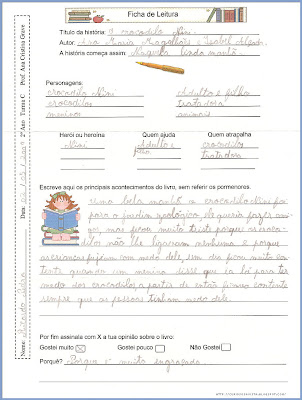 Ficha de Leitura
Título da história: O crocodilo Nini
Autor: Ana Maria Magalhães e Isabel Alçada
A história começa assim: Naquela linda manhã
Personagens:
crocodilo Nini Adulto e filho
crocodilos tratadora
meninos animais
Herói ou heroína Quem ajuda Quem atrapalha
Nini Adulto e crocodilos
filho tratadora
Escreve aqui os principais acontecimentos do livro, sem referir os pormenores.
Uma bela manhã o crocodilo Nini foi
para o jardim zoológico, ele queria fazer ami-
gos, mas ficou muito triste porque os croco-
dilos não lhe ligaram nenhuma e porque
as crianças fugiam com medo dele, um dia ficou muito con-
tente quando um menino disse que ia lá para ter
medo dos crocodilos, a partir de então ficou contente
sempre que as pessoas tinham medo dele.
Por fim assinala com X a tua opinião sobre o livro:
Gostei muito X Gostei pouco Não Gostei
Porquê? Porque é muito engraçado.
Nome: Data: 2º Ano Turma C Prof. Ana Cristina Grave